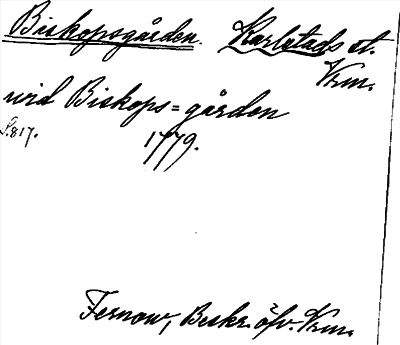 Biskopsgården. Karlstads st.
Vrm.
vid Biskops=gården
S. 817.
1779.
Fernow, Beskr. öfv. Vrm.